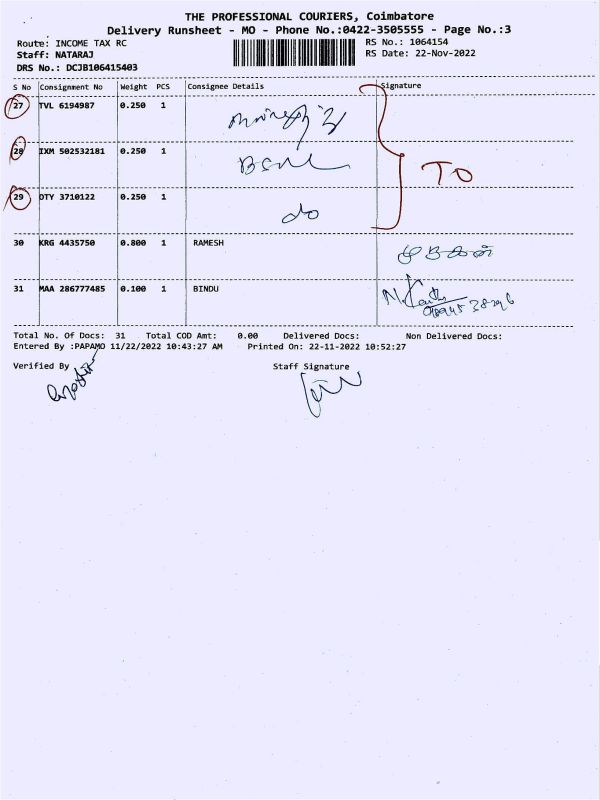 THE PROFESSIONAL COURIERS, Coimbatore
Delivery Runsheet - MO - Phone No.:0422-3505555 - Page No.:3
Route: INCOME TAX RC RS No.: 1064154
Staff: NATARAJ RS Date: 22-Nov-2022
DRS No.: DCJB106415403
S No Consignment No Weight PCS Consignee Details Signature
27 TVL 6194987 0.250 1
28 IXM 502532181 0.250 1 BSNL
TO
29 DTY 3710122 0.250 1 do
30 KRG 4435750 0.800 1 RAMESH முருகன்
31 MAA 286777485 0.100 1 BINDU
Total No. Of Docs: 31 Total COD Amt: 0.00 Delivered Docs: Non Delivered Docs:
Entered By :PAPAMO 11/22/2022 10:43:27 AM Printed On: 22-11-2022 10:52:27
Verified By Staff Signature